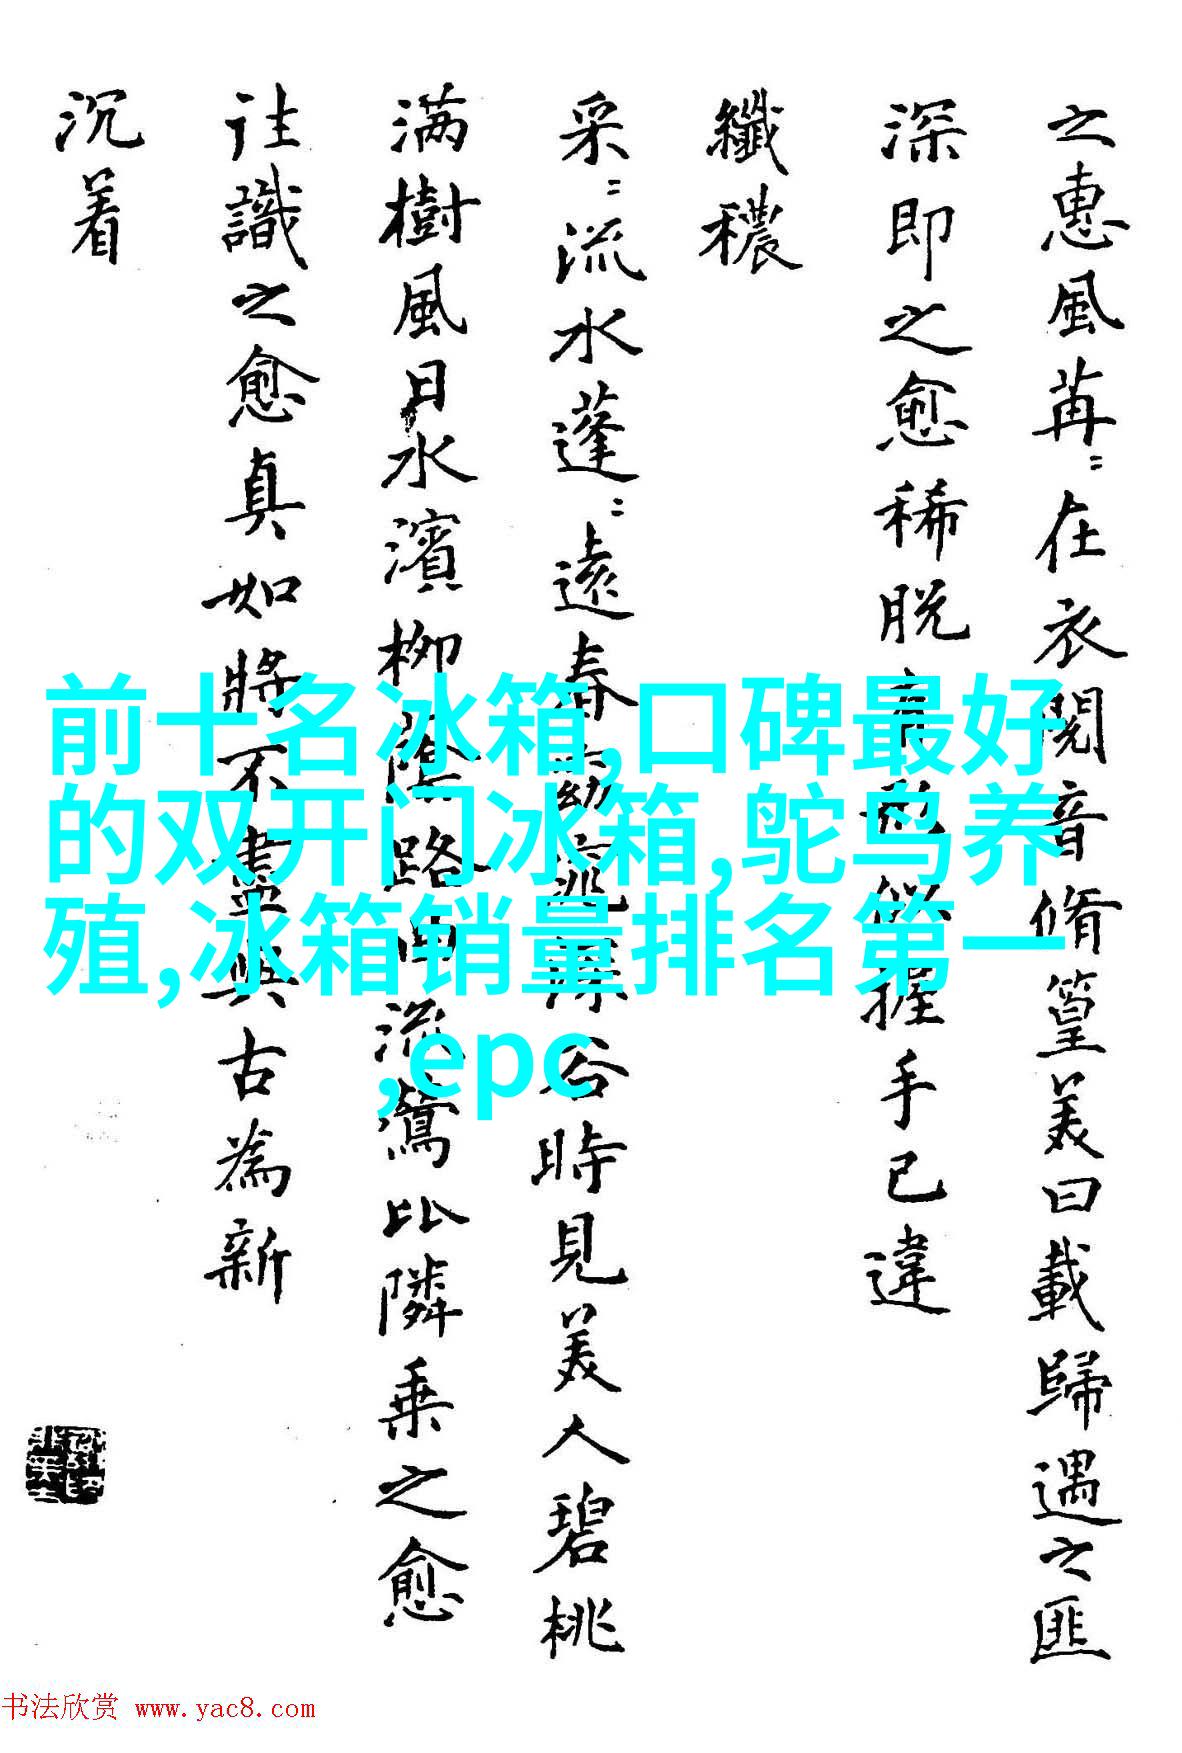 之惠風苒〻在衣閲音脩篁美曰載歸遇之匪
深即之愈稀脱有形似握手已違
纖穠
采〻流水蓬〻遠春窈窕深谷時見美人碧桃
满樹風日水濱柳陰路曲流鶯比隣乗之愈
往識之愈真如將不盡與古為新
沉着
前十名冰箱,口碑最好
的双开门冰箱,鸵鸟养
殖,冰箱销量排名第一
,epc
书法欣赏 www.yac8.com